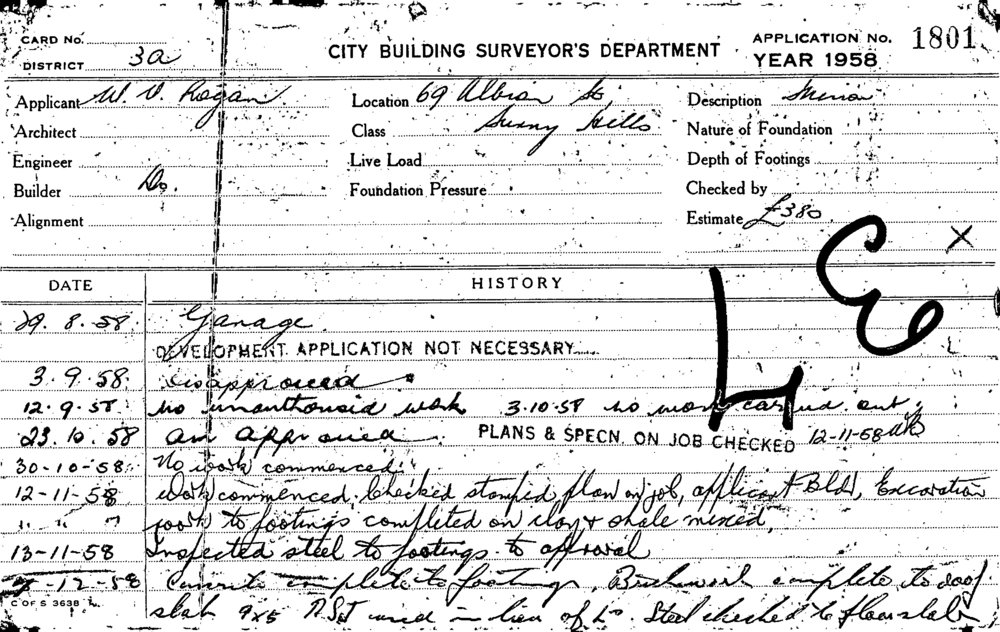 CARD No.
DISTRICT 3a
CITY BUILDING SURVEYOR'S DEPARTMENT
APPLICATION No. 1801
YEAR 1958
Applicant W. V. Hogan
Location 69 Albion St,
Description
Architect
Class Surry Hills
Nature of Foundation
Engineer
Live Load
Depth of Footings
Builder Do.
Foundation Pressure
Checked by
Alignment
Estimate £380
X
L E
DATE HISTORY
29.8.58 Garage
DEVELOPMENT APPLICATION NOT NECESSARY
3.9.58 disapproved
12.9.58 no unauthorisid work 3.10.58 no work carried out
23.10.58 approved. PLANS & SPECN. ON JOB CHECKED 12-11-58
30-10-58 No work commenced
12-11-58 Work commenced, Checked stamped plan on job, applicant Bldr, Excavation
" " " work to footings completed on clay & shale mixed,
13-11-58 Inspected steel to footings to approval
12-58 Concrete complete to footings, Brickwork complete to
C OF S 3638
slab 9x5 R.S.J used in lieu of Steel checked to floor slab